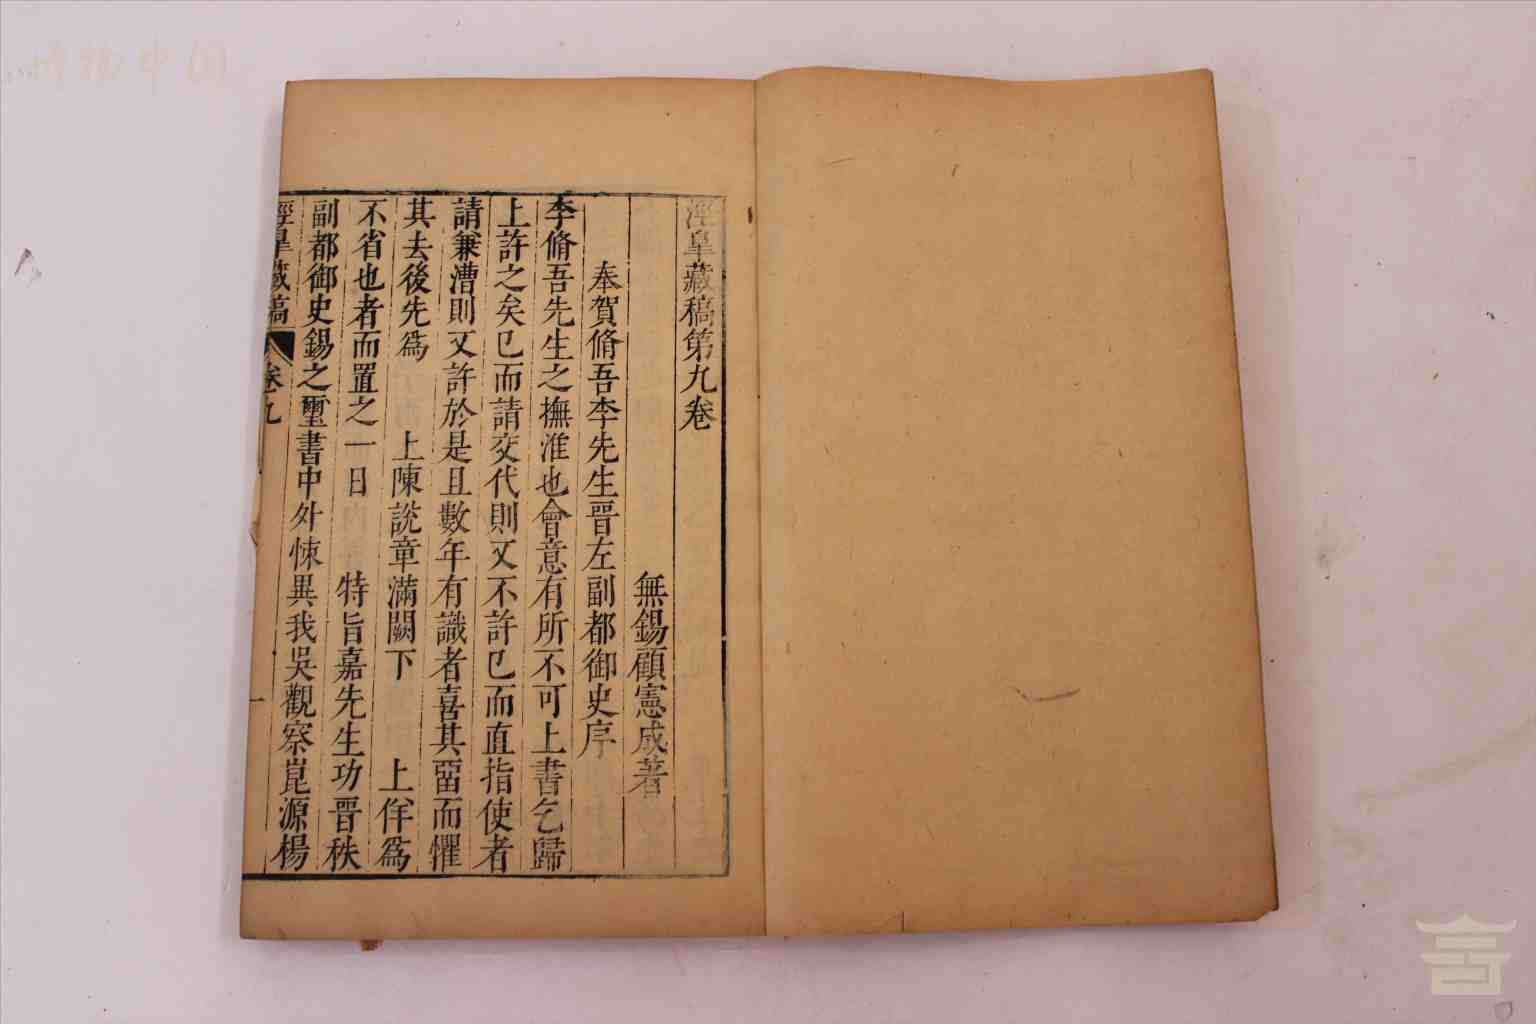 涇臯藏稿第九卷
無錫顧憲成著
奉賀脩吾李先生晉左副都御史序
李脩吾先生之撫淮也會意有所不可上書乞歸
上許之矣已而請交代則又不許已而直指使者
請兼漕則又許於是且數年有識者喜其畱而懼
其去後先爲 上陳說章滿闕下 上佯爲
不省也者而置之一日 特旨嘉先生功晉秩
副都御史錫之璽書中外悚異我吳觀察崑源楊
涇臯藏稿 卷九 一
博物中国